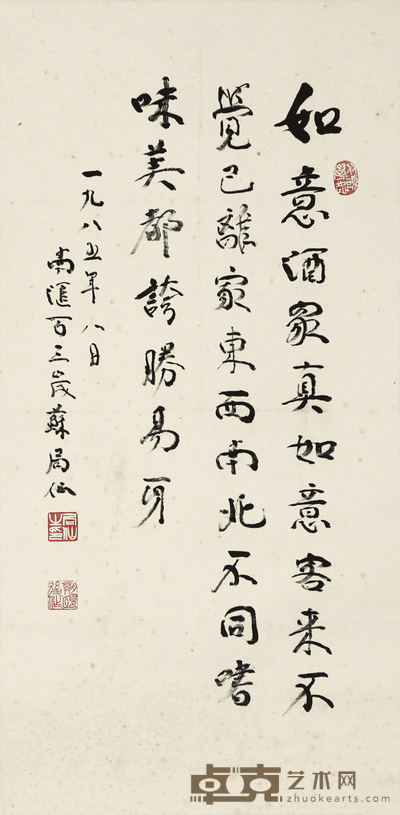 如意酒家真如意客来不
覺已離家東西南北不同嗜
味美都誇勝易牙
一九八五年八月
南匯百三歲蘇局仙
卓克艺术网
zhuokearts.com